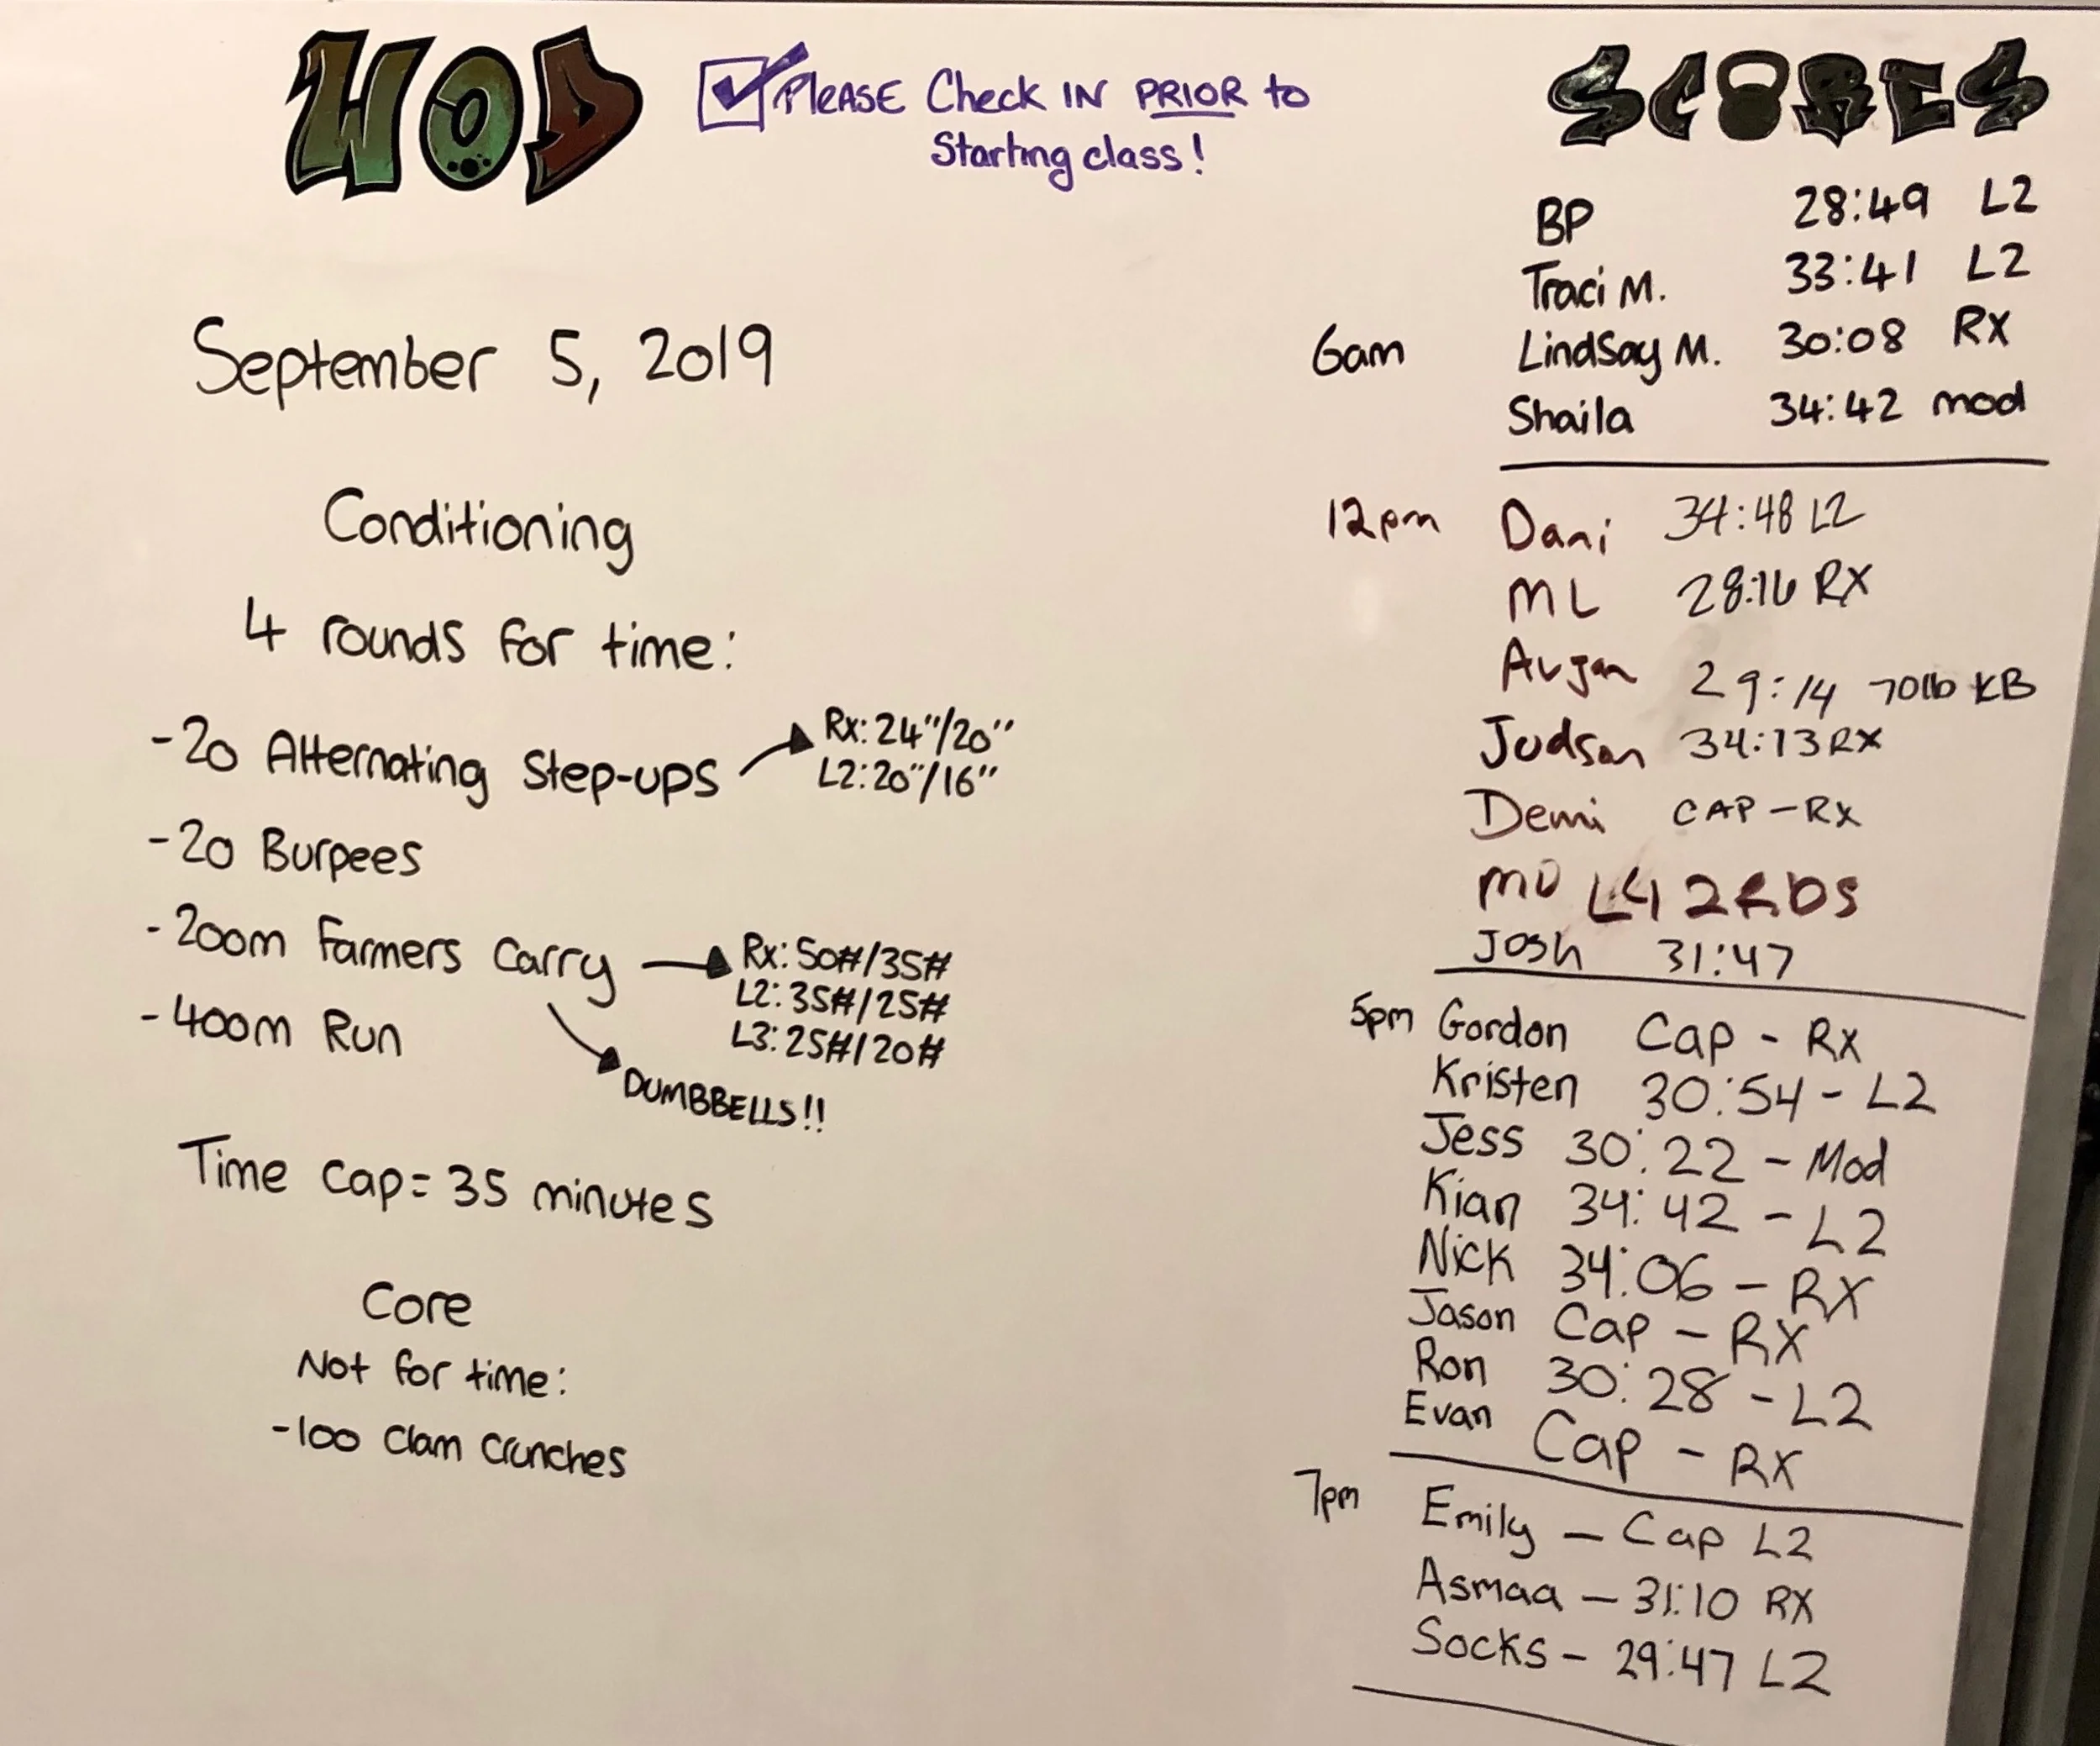 WOD
Please Check IN PRIOR to
Starting class!
September 5, 2019
Conditioning
4 rounds for time:
-20 Alternating Step-ups
Rx: 24"/20"
L2: 20"/16"
-20 Burpees
-200m Farmers Carry
Rx: 50#/35#
L2: 35#/25#
L3: 25#/20#
DUMBBELLS!!
-400m Run
Time cap= 35 minutes
Core
Not for time:
-100 Clam Crunches
SCORES
BP 28:49 L2
Traci M. 33:41 L2
6am Lindsay M. 30:08 Rx
Shaila 34:42 mod
12pm Dani 34:48 L2
ML 28:16 RX
29:14 70lb KB
Judson 34:13 RX
Demi CAP - RX
L4 2 RDS
Josh 31:47
5pm Gordon Cap - Rx
Kristen 30:54 - L2
Jess 30:22 - Mod
Kian 34:42 - L2
Nick 34:06 - RX
Jason Cap - RX
Ron 30:28 - L2
Evan Cap - RX
7pm Emily - Cap L2
Asmaa - 31:10 RX
Socks - 29:47 L2